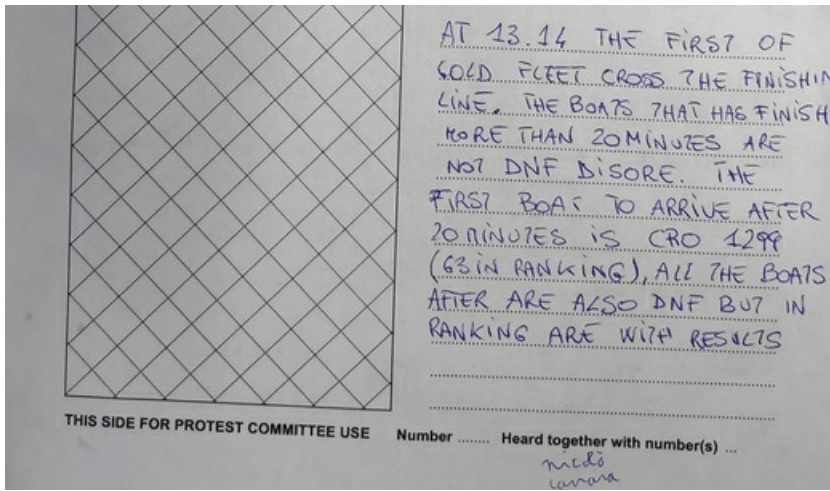 AT 13.14 THE FIRST OF
GOLD FLEET CROSS THE FINISHIN
LINE. THE BOATS THAT HAS FINISH
MORE THAN 20 MINUTES ARE
NOT DNF DISORE. THE
FIRST BOAT TO ARRIVE AFTER
20 MINUTES IS CRO 1299
(63 IN RANKING), ALL THE BOATS
AFTER ARE ALSO DNF BUT IN
RANKING ARE WITH RESULTS
THIS SIDE FOR PROTEST COMMITTEE USE Number ........ Heard together with number(s) ...